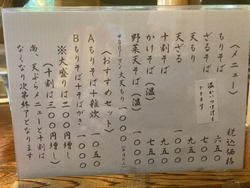 （メニュー）
税込価格
もりそば 六五〇
ざるそば 七五〇
天もり 九五〇
天ざる 一〇五〇
十割そば 七五〇
かけそば（温） 七五〇
野菜天そば（温） 九五〇
大天もり 一〇〇〇
（おすすめセット）
Aもりそば＋十雑炊 一〇五〇
Bもりそば＋そばがき 一〇〇〇
※大盛りは 二〇〇円増し
（十割は 三〇〇円増し）
尚、天ぷらメニューと十割は
なくなり次第終了となります